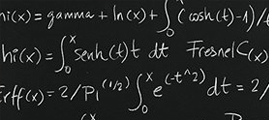 hi(x) = gamma + ln(x) + ∫₀ˣ (cosh(t)-1)/t
hi(x) = ∫₀ˣ senh(t) t dt FresnelC(x)
Erff(x) = 2/Pi^(1/2) ∫₀ˣ e^(-t^2) dt = 2/